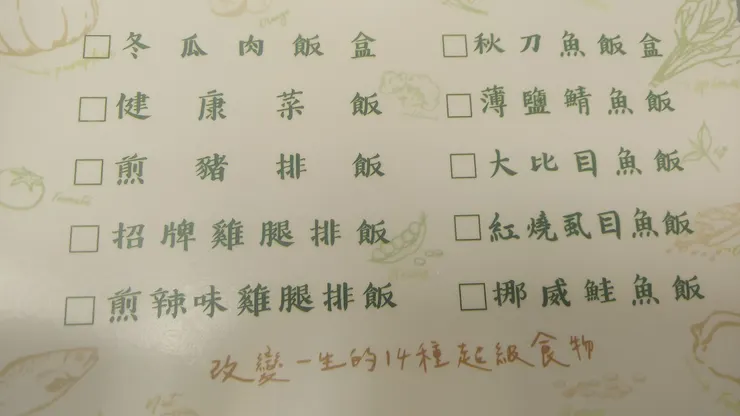 冬瓜肉飯盒
秋刀魚飯盒
健康菜飯
薄鹽鯖魚飯
煎豬排飯
大比目魚飯
招牌雞腿排飯
紅燒虱目魚飯
煎辣味雞腿排飯
挪威鮭魚飯
改變一生的14種起級食物